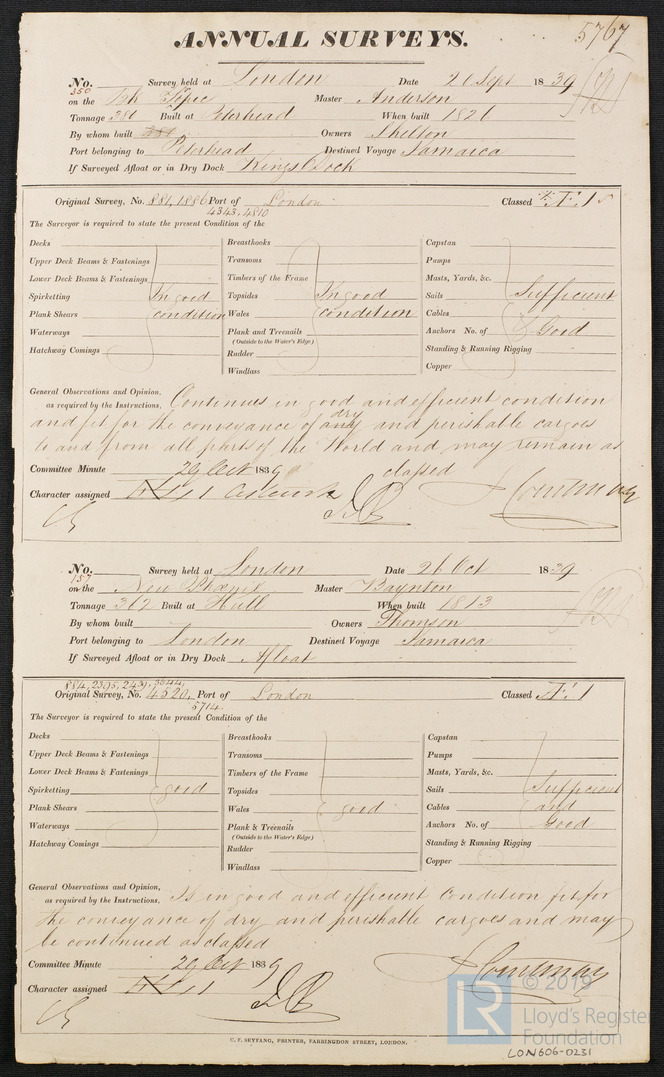 5767
ANNUAL SURVEYS.
No. 350 Survey held at London Date 21 Sept 1839
on the Bk Tepic Master Anderson
Tonnage 381 Built at Peterhead When built 1821
By whom built Owners Skelton
Port belonging to Peterhead Destined Voyage Jamaica
If Surveyed Afloat or in Dry Dock Kings Dock
Original Survey, No. 881, 1886 Port of London Classed Æ 1
4343, 4810
The Surveyor is required to state the present Condition of the
Decks Breasthooks Capstan
Upper Deck Beams & Fastenings Transoms Pumps
Lower Deck Beams & Fastenings Timbers of the Frame Masts, Yards, &c.
Spirketting In good Topsides In good Sails Sufficient
Plank Shears condition Wales condition Cables &
Waterways Plank and Treenails Anchors No. of Good
(Outside to the Water's Edge)
Hatchway Comings Rudder Standing & Running Rigging
Windlass Copper
General Observations and Opinion,
as required by the Instructions, Continues in good and efficient condition
and fit for the conveyance of any dry and perishable cargoes
to and from all parts of the World and may remain as
classed
Committee Minute 29 Oct 1839
Character assigned Æ 1
No. 157 Survey held at London Date 26 Oct 1839
on the New Phœnix Master Baynton
Tonnage 362 Built at Hull When built 1813
By whom built Owners Thomson
Port belonging to London Destined Voyage Jamaica
If Surveyed Afloat or in Dry Dock Afloat
884, 2395, 2439, 3644,
Original Survey, No. 4520, Port of London Classed Æ 1
5714.
The Surveyor is required to state the present Condition of the
Decks Breasthooks Capstan
Upper Deck Beams & Fastenings Transoms Pumps
Lower Deck Beams & Fastenings Timbers of the Frame Masts, Yards, &c.
Spirketting good Topsides Sails Sufficient
Plank Shears Wales good Cables and
Waterways Plank & Treenails Anchors No. of Good
(Outside to the Water's Edge)
Hatchway Comings Rudder Standing & Running Rigging
Windlass Copper
General Observations and Opinion,
as required by the Instructions, Is in good and efficient Condition fit for
the conveyance of dry and perishable cargoes and may
be continued as classed
Committee Minute 29 Oct 1839
Character assigned Æ 1
C. F. SEYFANG, PRINTER, FARRINGDON STREET, LONDON.
LR © 2019
Lloyd's Register
Foundation
LON606-0231